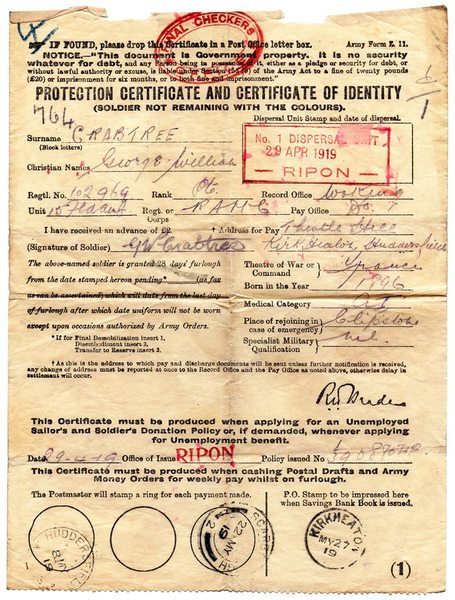 NAL CHECKERS
IF FOUND, please drop this Certificate in a Post Office letter box. Army Form Z. 11.
NOTICE.—"This document is Government property. It is no security
whatever for debt, and any Person being in possession of it, either as a pledge or security for debt, or
without lawful authority or excuse, is liable under Section of the Army Act to a fine of twenty pounds
(£20) or imprisonment for six months, or to both fine and imprisonment."
PROTECTION CERTIFICATE AND CERTIFICATE OF IDENTITY
(SOLDIER NOT REMAINING WITH THE COLOURS).
764
Dispersal Unit Stamp and date of dispersal.
Surname CRABTREE
(Block letters)
No. 1 DISPERSAL UNIT
29 APR 1919
– RIPON –
Christian Names George William
Regtl. No. 102969 Rank Pte. Record Office Woking
Unit Regt. or Corps RAMC Pay Office
I have received an advance of £2. † Address for Pay Thistle Hill
(Signature of Soldier) GW Crabtree Kirkheaton, Huddersfield
The above-named soldier is granted 28 days furlough
from the date stamped hereon pending * (as far
as can be ascertained) which will date from the last day
of furlough after which date uniform will not be worn
except upon occasions authorized by Army Orders.
Theatre of War or Command France
Born in the Year 1896
Medical Category
Place of rejoining in case of emergency Clipstone
Specialist Military Qualification nil
* If for Final Demobilization insert 1.
Disembodiment insert 2.
Transfer to Reserve insert 3.
† As this is the address to which pay and discharge documents will be sent unless further notification is received,
any change of address must be reported at once to the Record Office and the Pay Office as noted above, otherwise delay in
settlement will occur.
This Certificate must be produced when applying for an Unemployed
Sailor's and Soldier's Donation Policy or, if demanded, whenever applying
for Unemployment benefit.
Date 29-4-19 Office of Issue RIPON Policy issued No.
This Certificate must be produced when cashing Postal Drafts and Army
Money Orders for weekly pay whilst on furlough.
The Postmaster will stamp a ring for each payment made.
P.O. Stamp to be impressed here
when Savings Bank Book is issued.
HUDDERSFIELD
19
22 MY
19
KIRKHEATON
MY 27
19
(1)